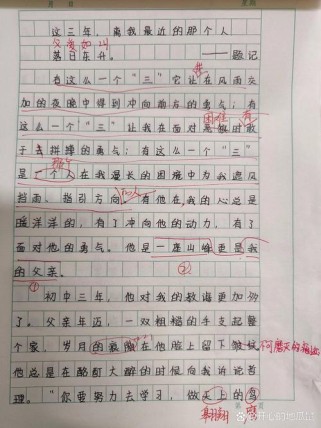 这三年，离我最近的那个人
父爱如山
落日东升。 ——题记
有这么一个“三”它让我在风雨交
加的夜晚中得到冲向前方的勇气；有
这么一个“三”让我在面对困难时敢
于去拼搏的勇气；有这么一个“三”
是一个人在我漫长的困境中为我遮风
挡雨、指引方向。有他在我的心总是
暖洋洋的，有了冲向他的动力，有了
面对他的勇气。他是一座山峰更是我
的父亲。
② 
① 初中三年，他对我的教诲更加多
了。父亲年迈，一双粗糙的手支起整
个家，岁月的 在他脸上留下 
他总是在酩酊大醉的时候向我诉论哲
理。“你要努力去学习，做天上的鸟
翱翔